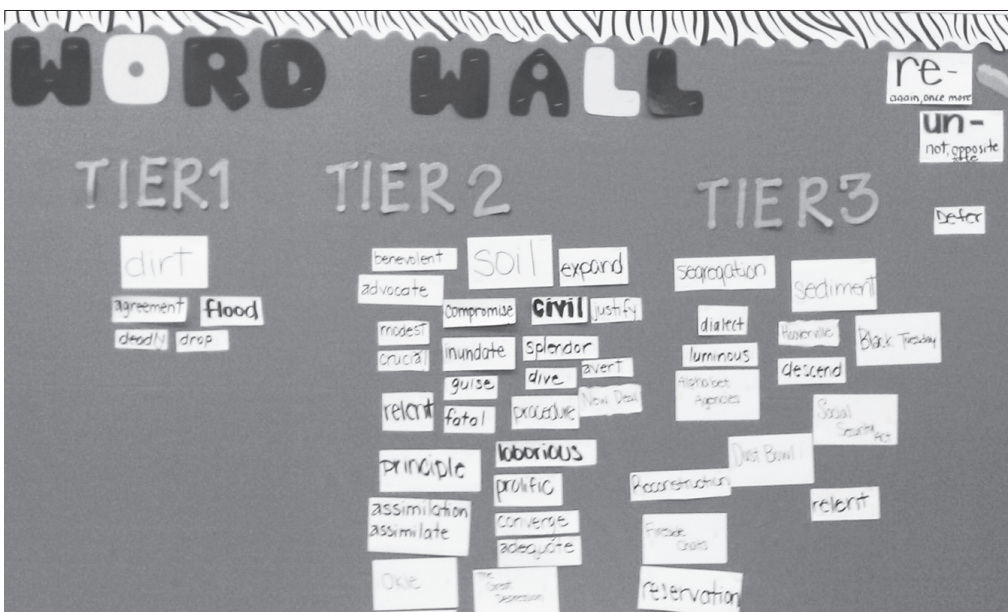 WORD WALL
re-
again, once more
un-
not, opposite
TIER 1
TIER 2
TIER 3
Defer
dirt
agreement
flood
deadly
drop
benevolent
soil
expand
advocate
compromise
civil
justify
modest
crucial
inundate
splendor
avert
guise
dive
relent
fatal
procedure
New Deal
principle
laborious
prolific
assimilation
assimilate
converge
adequate
Okie
The
Great
Depression
segregation
sediment
dialect
Hooverville
Black Tuesday
luminous
descend
Alphabet
Agencies
Social
Security Act
Dust Bowl
Reconstruction
relent
Fireside
Chats
reservation